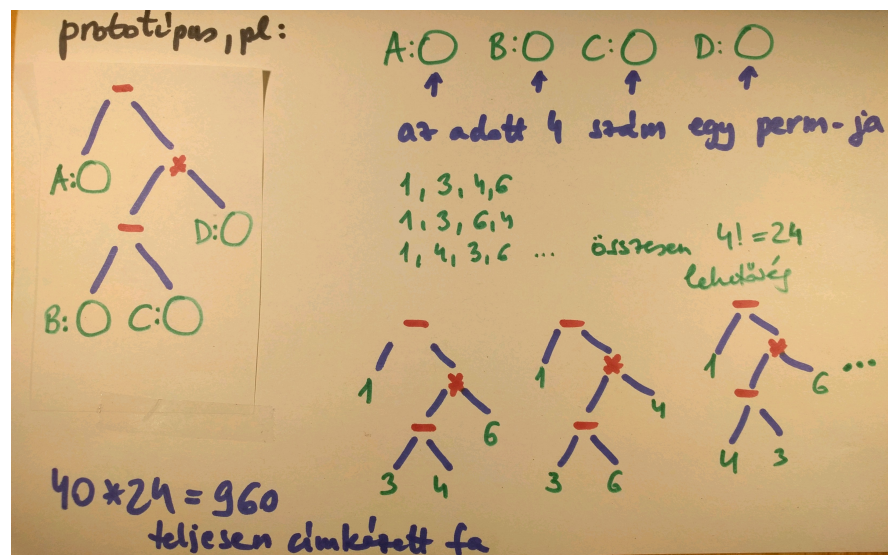 prototípus, pl:
A: B: C: D:
az adott 4 szám egy perm-ja
1, 3, 4, 6
1, 3, 6, 4
1, 4, 3, 6 ... összesen 4! = 24
lehetőség
-
A: *
- D:
B: C:
- - -
1 * 1 * 1 * ...
- 6 - 4 - 6
3 4 3 6 4 3
40*24=960
teljesen címkézett fa